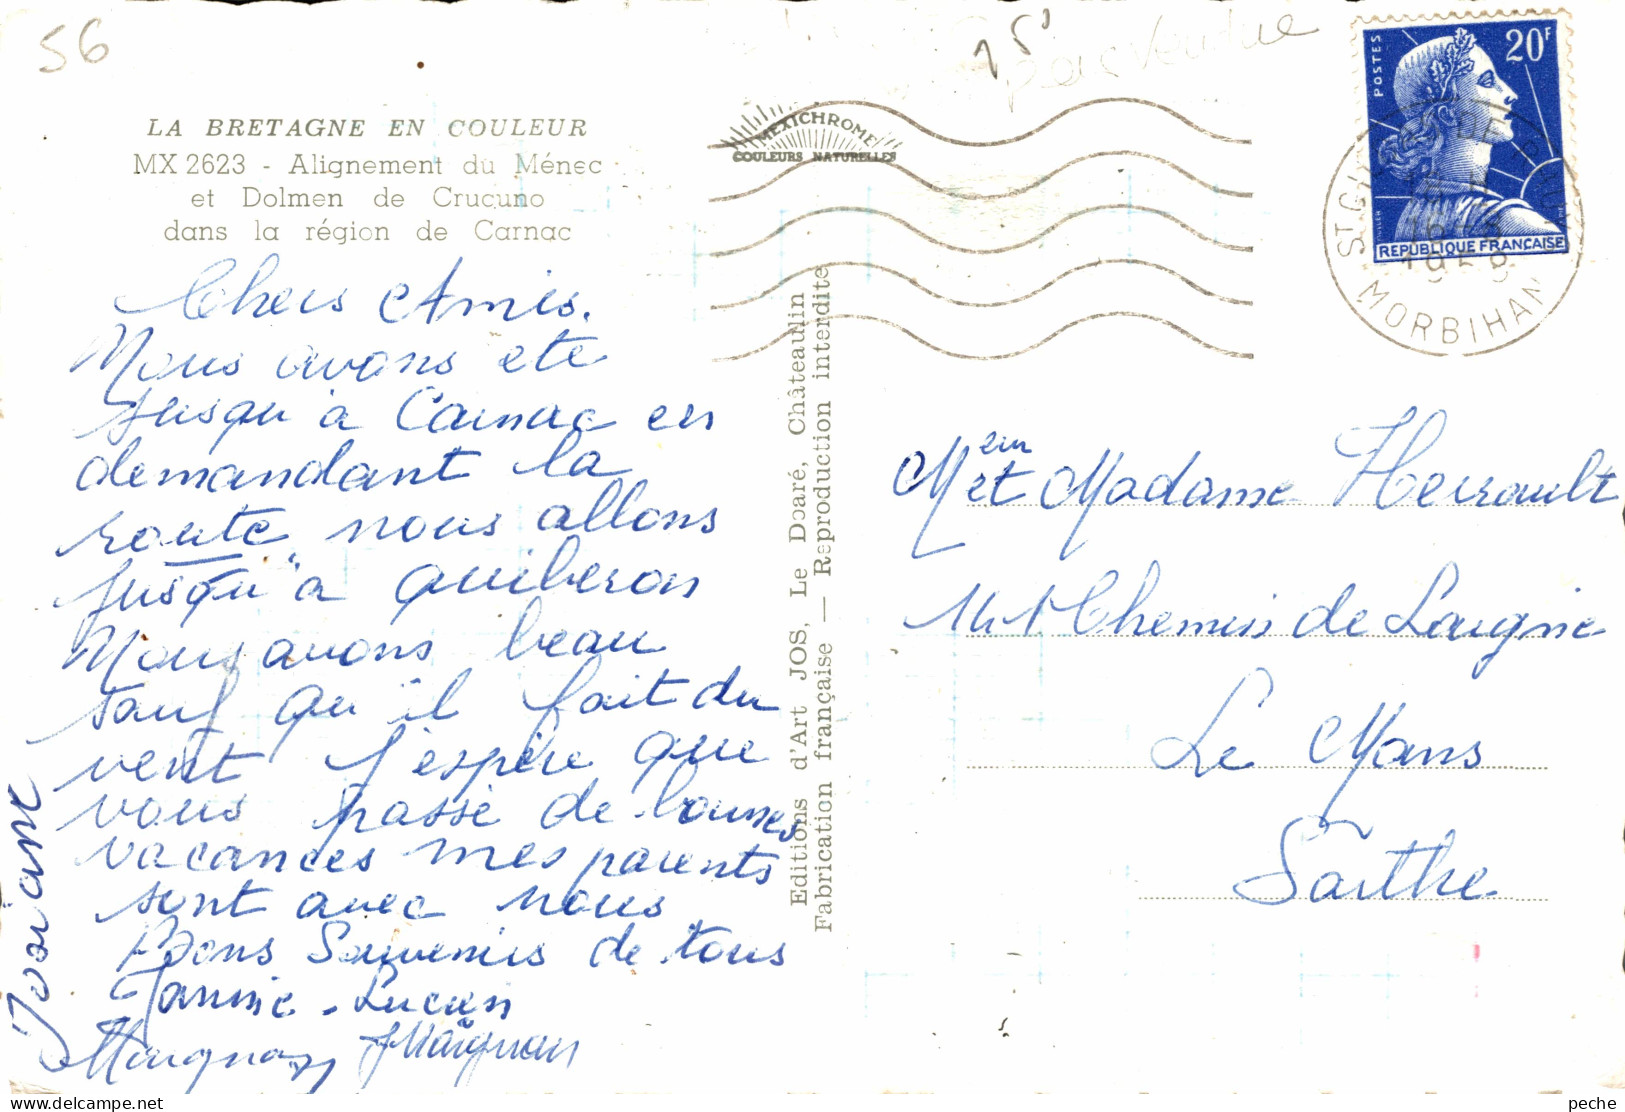 56
25
pas vendue
LA BRETAGNE EN COULEUR
MX 2623 - Alignement du Ménec
et Dolmen de Crucuno
dans la région de Carnac
MEXICHROME
COULEURS NATURELLES
POSTES
20F
REPUBLIQUE FRANÇAISE
MORBIHAN
Chers Amis.
Nous avons ete
jusqu'a Carnac en
demandant la
route, nous allons
jusqu'a quiberon
Nous avons beau
sauf qu'il fait du
vent j'espère que
vous passé de bonnes
vacances mes parents
sont avec nous
Bons Souvenirs de tous
Jannie. Lucien
Maignan JMaignan
Josiane
Editions d'Art JOS, Le Doaré, Châteaulin
Fabrication française — Reproduction interdite
Meur et Madame Herrault
141 Chemin de Laigne
Le Mans
Sarthe
peche